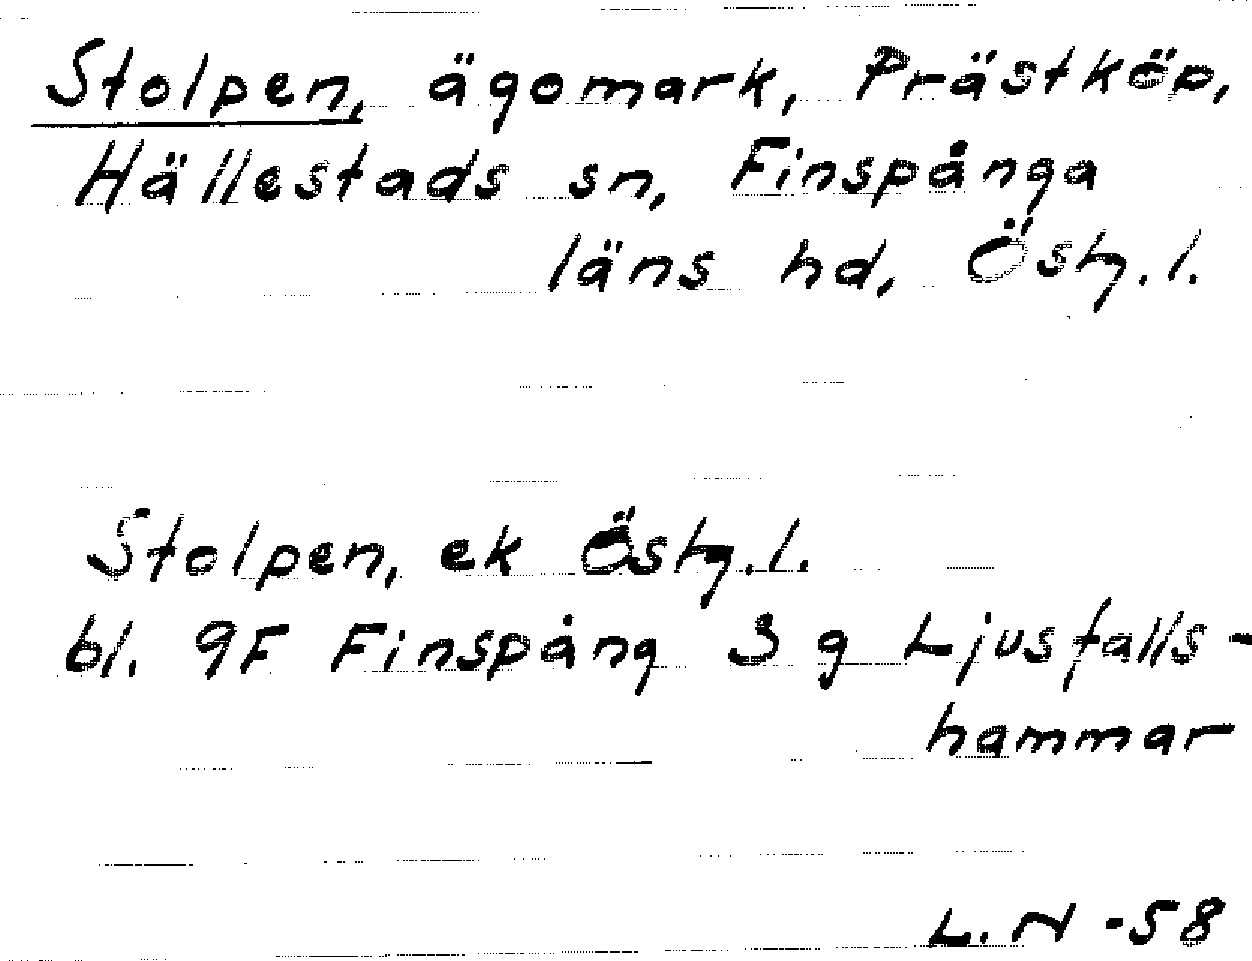 Stolpen, ägomark, Prästköp,
Hällestads sn, Finspånga
läns hd, Östg.l.
Stolpen, ek Östg.l.
bl. 9F Finspång 3 g Ljusfalls-
hammar
L. N -58